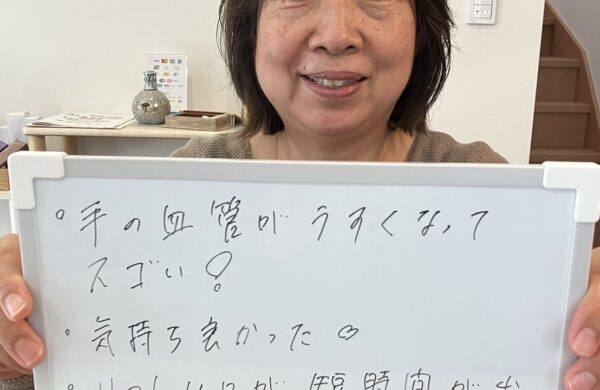 。手の血管がうすくなって
スゴい!
・気持ち良かった♡
短時間が